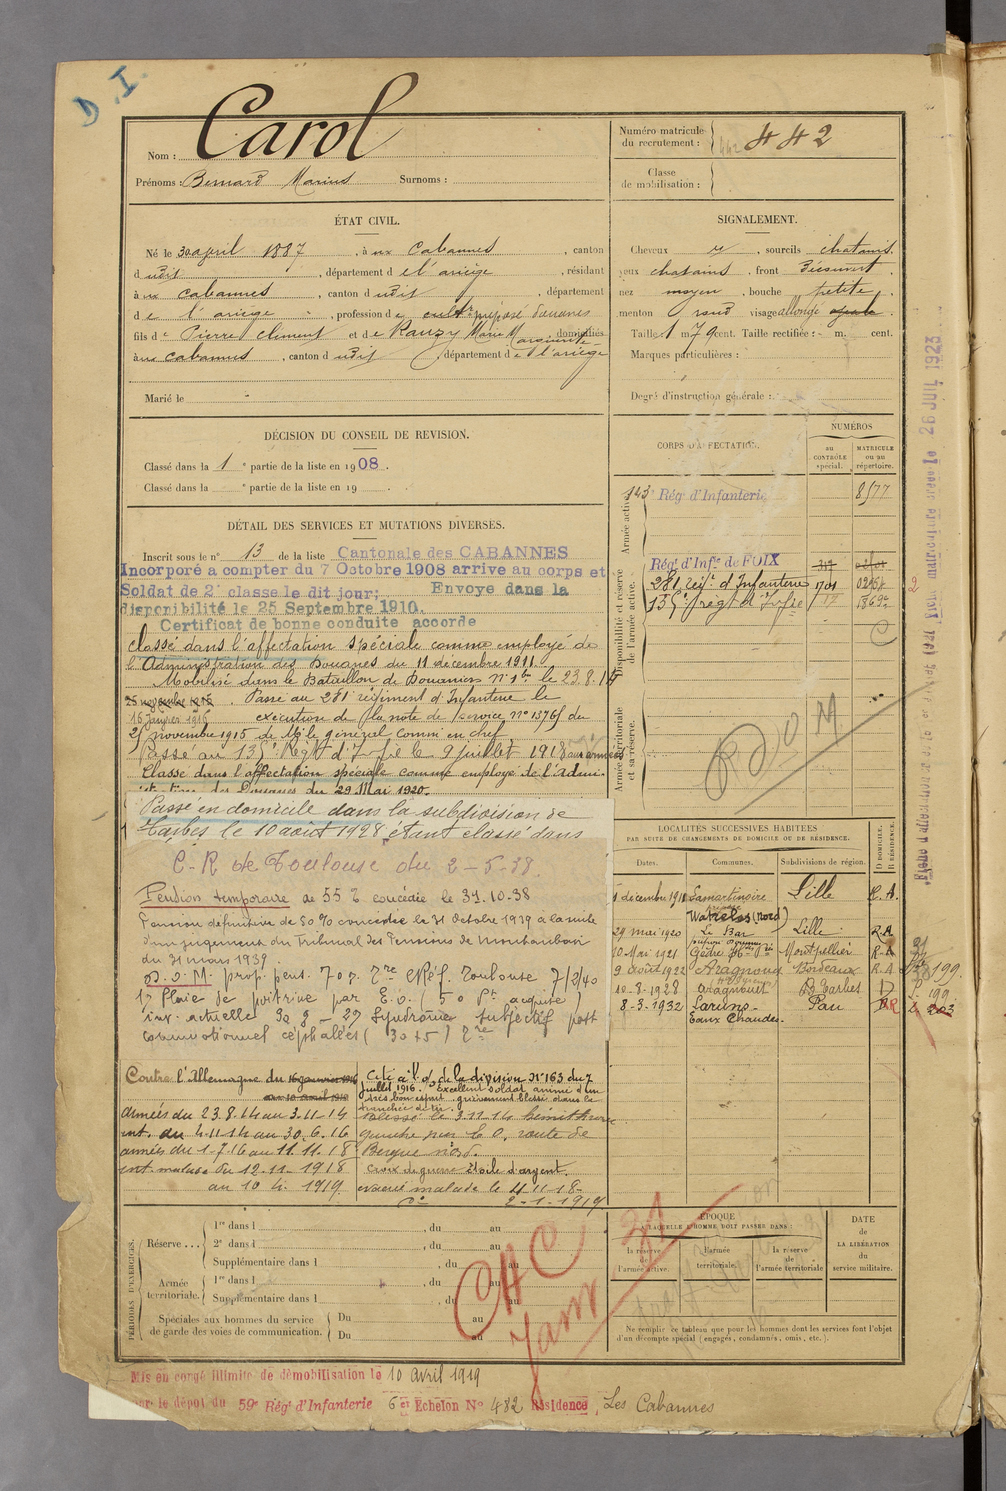 D.I.
Nom : Carol
Prénoms : Bernard Marius Surnoms :
Numéro matricule du recrutement : 442
Classe de mobilisation :
ÉTAT CIVIL.
Né le 30 april 1887, à ux Cabannes, canton
d udit, département d e l'ariège, résidant
à ux Cabannes, canton d udit, département
d e l'ariège, profession de cultr préposé douanes
fils de Pierre Clément et de Rauzy Marie Marguerite domiciliés
à ux Cabannes, canton d udit département d e l'ariège
Marié le
SIGNALEMENT.
Cheveux et, sourcils chatains.
yeux chatains, front découvert,
nez moyen, bouche petite,
menton rond visage allongé
Taille : 1 m 79 cent. Taille rectifiée : m. cent.
Marques particulières :
Degré d'instruction générale :
DÉCISION DU CONSEIL DE REVISION.
Classé dans la 1e partie de la liste en 1908.
Classé dans la e partie de la liste en 19 .
CORPS D'AFFECTATION.
NUMÉROS
au CONTRÔLE spécial.
MATRICULE ou au répertoire.
Armée active.
143 Rég. d'Infanterie 8577
Disponibilité et réserve de l'armée active.
Rég. d'Infie de FOIX
281 régt d'Infanterie 1701
135e régt d'Infie
Armée territoriale et sa réserve.
DOM
DÉTAIL DES SERVICES ET MUTATIONS DIVERSES.
Inscrit sous le n° 13 de la liste Cantonale des CABANNES
Incorporé a compter du 7 Octobre 1908 arrive au corps et
Soldat de 2e classe le dit jour; Envoye dans la
disponibilité le 25 Septembre 1910.
Certificat de bonne conduite accorde
classé dans l'affectation spéciale comme employé de
l'Administration des Douanes du 11 décembre 1911.
Mobilisé dans le Bataillon de Douaniers n° 1 le 23.8.14
25 novembre 1915. Passé au 281 régiment d'Infanterie le
16 Janvier 1916 exécution de la note de service n° 13765 du
25 novembre 1915 de Mr le général Commt en chef
Passé au 135e Régt d'Infie le 9 juillet 1918 aux armées
Classé dans l'affectation spéciale comme employé de l'Admi-
nistration des Douanes du 29 Mai 1920.
Passé en domicile dans la subdivision de
Tarbes le 10 août 1928 étant classé dans
C.R de Toulouse du 2-5-38.
Pension temporaire de 55 % concédée le 31.10.38
Pension définitive de 50 % concédée le 31 octobre 1939 à la suite
d'un jugement du Tribunal des Pensions de Montauban
du 31 mars 1939.
prop. pens. 70 p. Toulouse 7/2/40
1) Plaie de poitrine par E.O. (50 Pt acquise)
inv. actuelle 30 2) Syndrome subjectif post
commotionnel céphalées (30+5)
LOCALITÉS SUCCESSIVES HABITÉES
PAR SUITE DE CHANGEMENTS DE DOMICILE OU DE RÉSIDENCE.
Dates. Communes. Subdivisions de région. D DOMICILE. R RÉSIDENCE.
1 décembre 1911 Lamartinoire Lille R.A.
Watrelos (nord)
29 mai 1920 Le Bar Lille R.A
10 Mai 1921 Gèdre Montpellier R.A
9 août 1922 Aragnouet Bordeaux R.A
10-8-1928 aragnouet Tarbes D
8-3-1932 Laruns Pau R
Eaux Chaudes.
199.
Contre l'Allemagne du 16 janvier 1916
au 10 avril 1919
armées du 23.8.14 au 3.11.14
int. du 4.11.14 au 30.6.16
armées du 1.7.16 au 11.11.18
int malade du 12.11.1918
au 10.4.1919.
Cité à l'o. de la division N° 163 du 7
juillet 1916. Excellent soldat, animé d'un
très bon esprit, grièvement blessé dans la
tranchée de tir.
Blessé le 3.11.14 hémithorax
gauche par E.O. route de
Bergue nord.
Croix de guerre étoile d'argent.
évacué malade le 4.11.18-
do 2-1-1919
PÉRIODES D'EXERCICES.
Réserve... 1re dans l , du au
2e dans l , du au
Supplémentaire dans l , du au
Armée territoriale. 1re dans l , du au
Supplémentaire dans l , du au
Spéciales aux hommes du service de garde des voies de communication. Du au
Du au
CHC
31
Janv
ÉPOQUE
À LAQUELLE L'HOMME DOIT PASSER DANS :
la réserve de l'armée active.
l'armée territoriale.
la réserve de l'armée territoriale
DATE DE LA LIBÉRATION du service militaire.
Ne remplir ce tableau que pour les hommes dont les services font l'objet
d'un décompte spécial (engagés, condamnés, omis, etc.).
Mis en congé illimité de démobilisation le 10 avril 1919
par le dépot du 59e Régt d'Infanterie 6e Echelon N° 482 Résidence, Les Cabannes